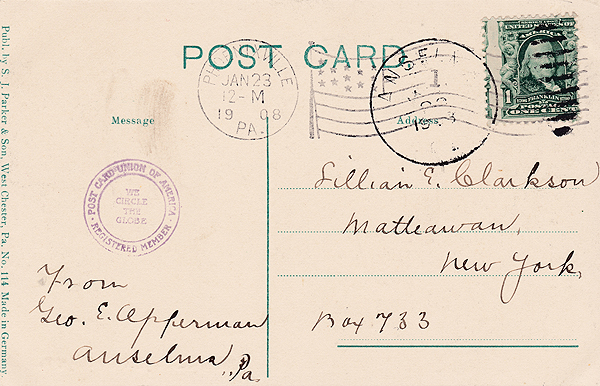 POST CARD
PHOENIXVILLE
JAN 23
12-M
1908
PA.
1
ANSELMA
1908
SERIES 1902
UNITED STATES OF AMERICA
1 FRANKLIN 1
POSTAGE
ONE CENT
Message
Address
POST CARD UNION OF AMERICA
WE
CIRCLE
THE
GLOBE
REGISTERED MEMBER
Lillian E. Clarkson
Matteawan,
New York,
Box 733
From
Geo. E. Opperman
Anselma, Pa.
Publ. by S. J. Parker & Son, West Chester, Pa. No. 114 Made in Germany.